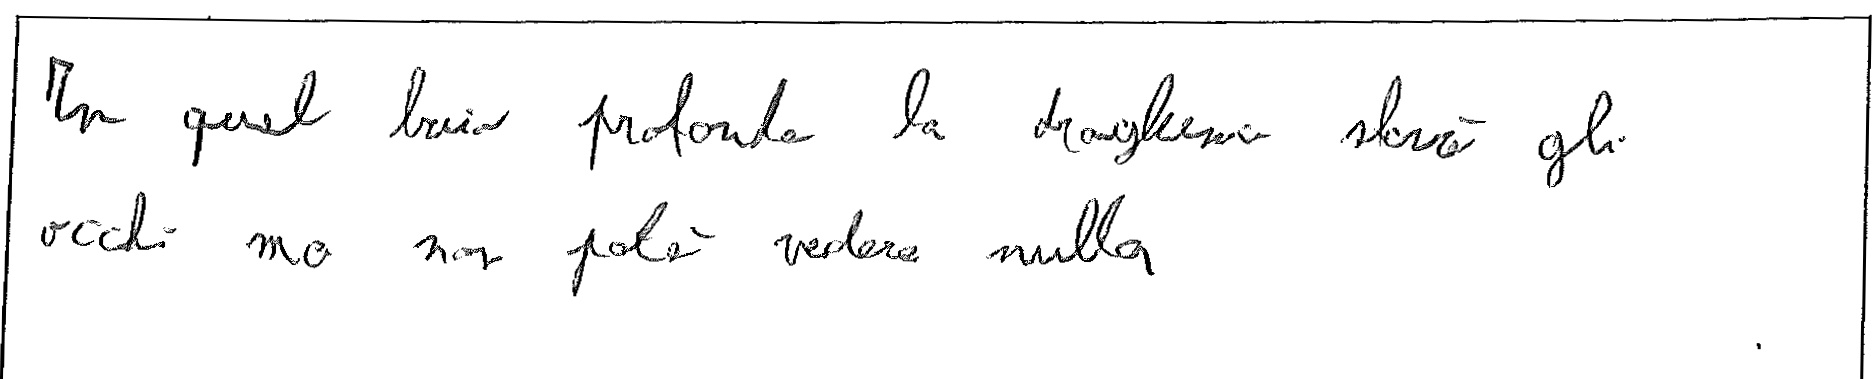 In quel buio profondo la draghessa elevò gli
occhi ma non poté vedere nulla